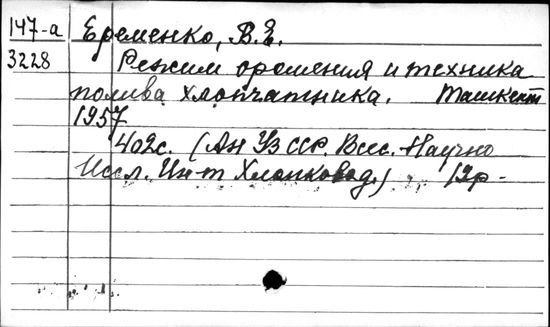 147-а Еременко, В.Е.
3228 Режим орошения и техника
полива хлопчатника. Ташкент
1957
402с. (Ан Уз ССР. Всес. Научно
Иссл. Ин-т Хлопковод.) 12р-